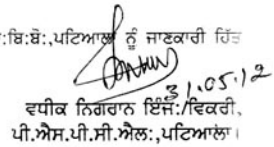 :ਬਿ:ਬੋ:,ਪਟਿਆਲਾ ਨੂੰ ਜਾਣਕਾਰੀ ਹਿੱਤ
31.05.12
ਵਧੀਕ ਨਿਗਰਾਨ ਇੰਜ:/ਵਿਕਰੀ,
ਪੀ.ਐਸ.ਪੀ.ਸੀ.ਐਲ:,ਪਟਿਆਲਾ।